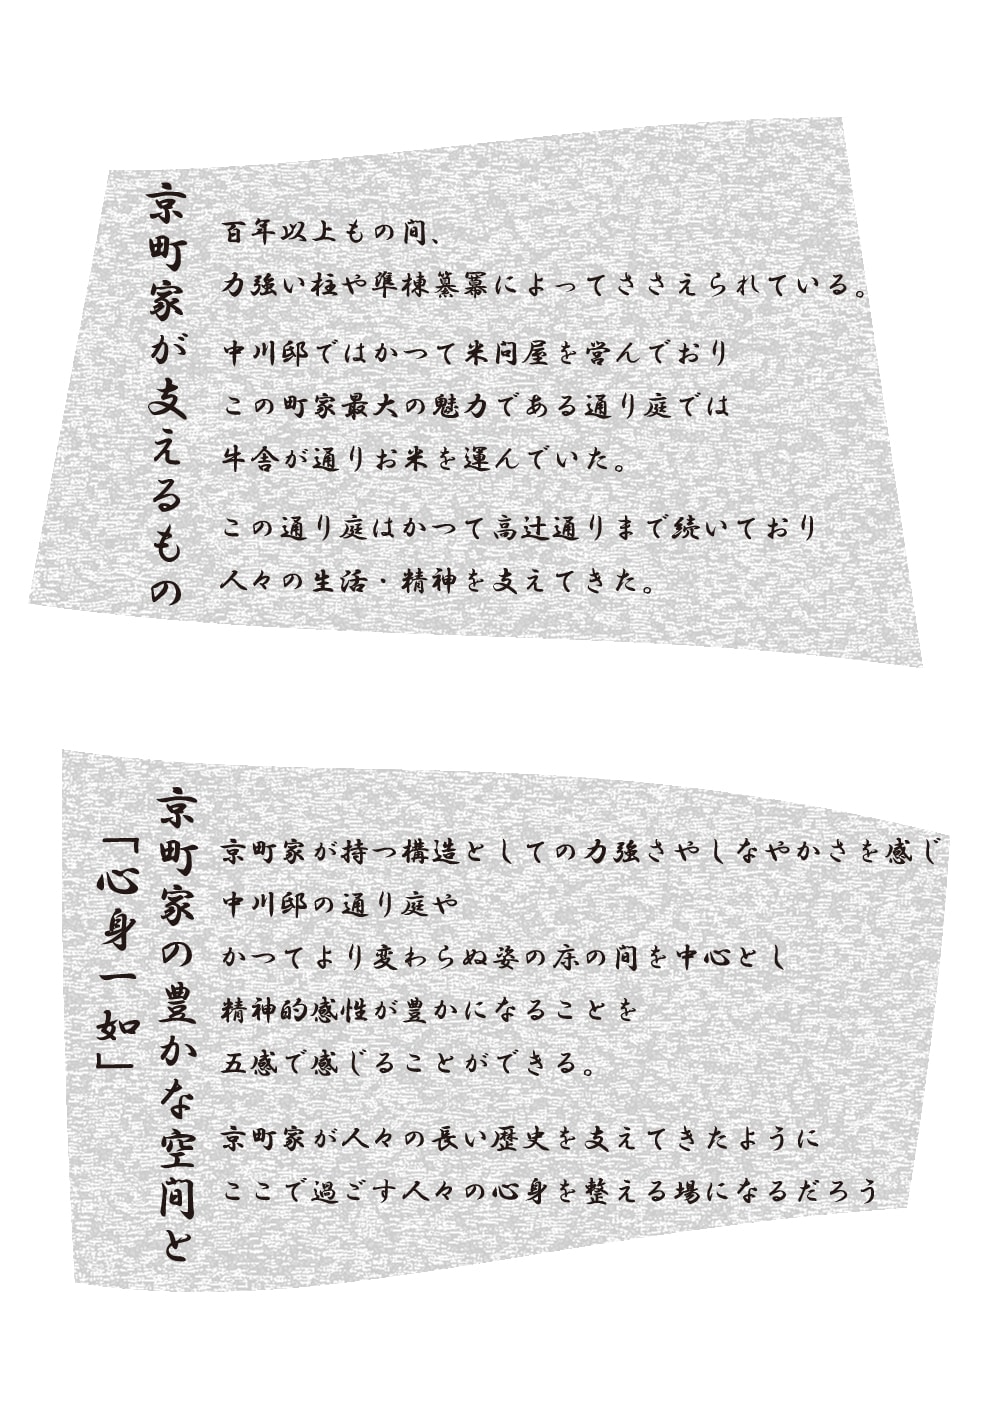 京町家が支えるもの
百年以上もの間、
力強い柱や準棟纂冪によってささえられている。
中川邸ではかつて米问屋を営んでおり
この町家最大の魅力である通り庭では
牛舎が通りお米を運んでいた。
この通り庭はかつて高辻通りまで続いており
人々の生活・精神を支えてきた。
京町家の豊かな空间と
「心身一如」
京町家が持つ構造としての力強さやしなやかさを感じ
中川邸の通り庭や
かつてより変わらぬ姿の床の間を中心とし
精神的感性が豊かになることを
五感で感じることができる。
京町家が人々の長い歴史を支えてきたように
ここで過ごす人々の心身を整える場になるだろう